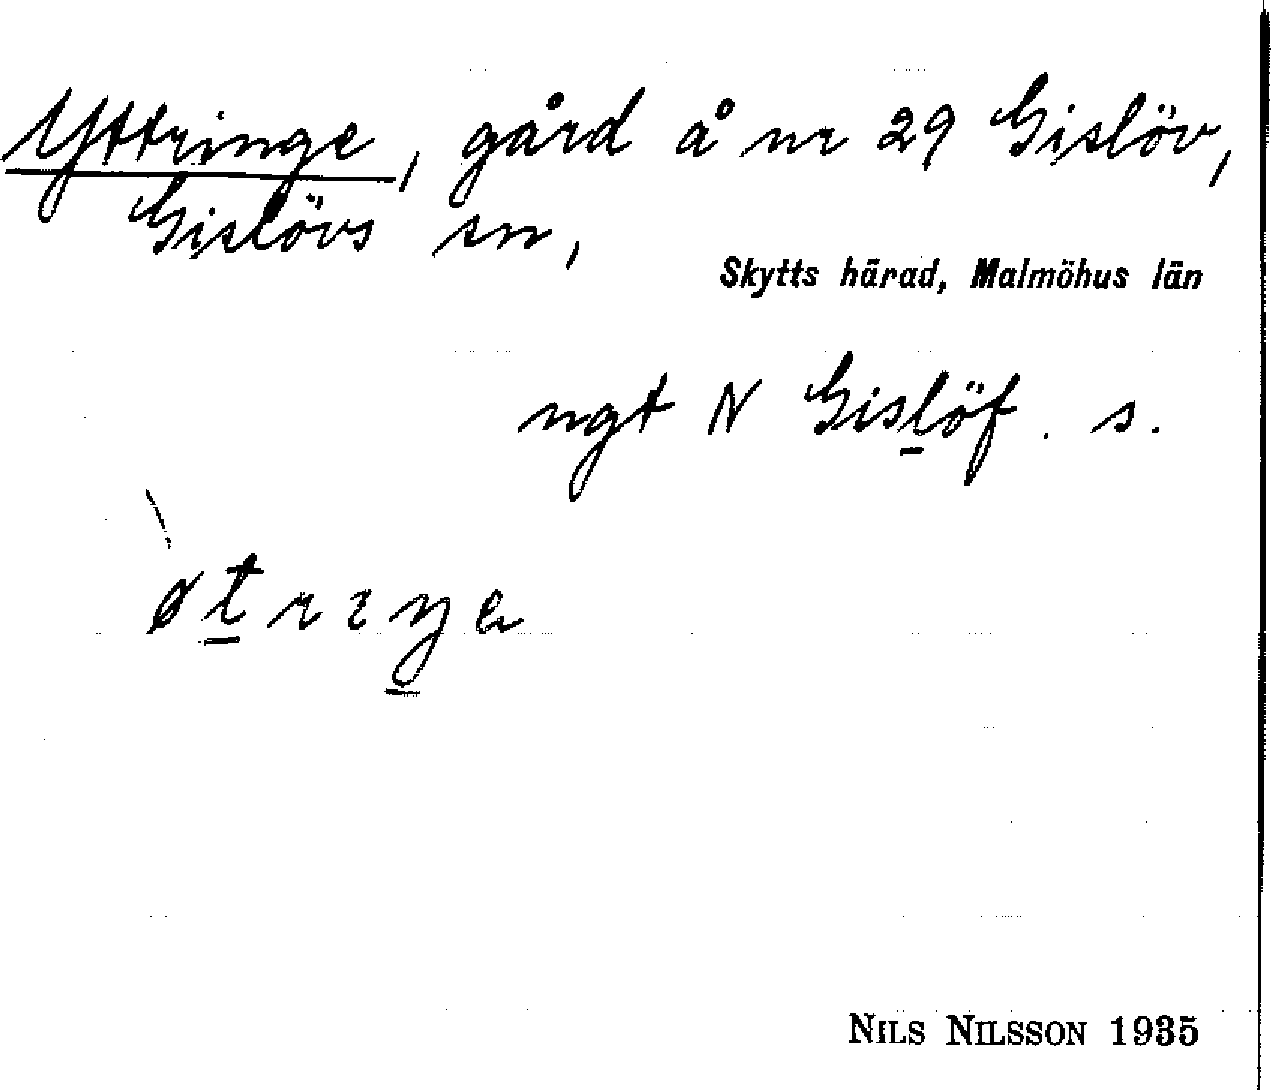 Yttringe, gård å nr 29 Gislöv,
Gislövs sn,
Skytts härad, Malmöhus län
ngt N Gislöf. s.
ø̀trɪŋə
NILS NILSSON 1935